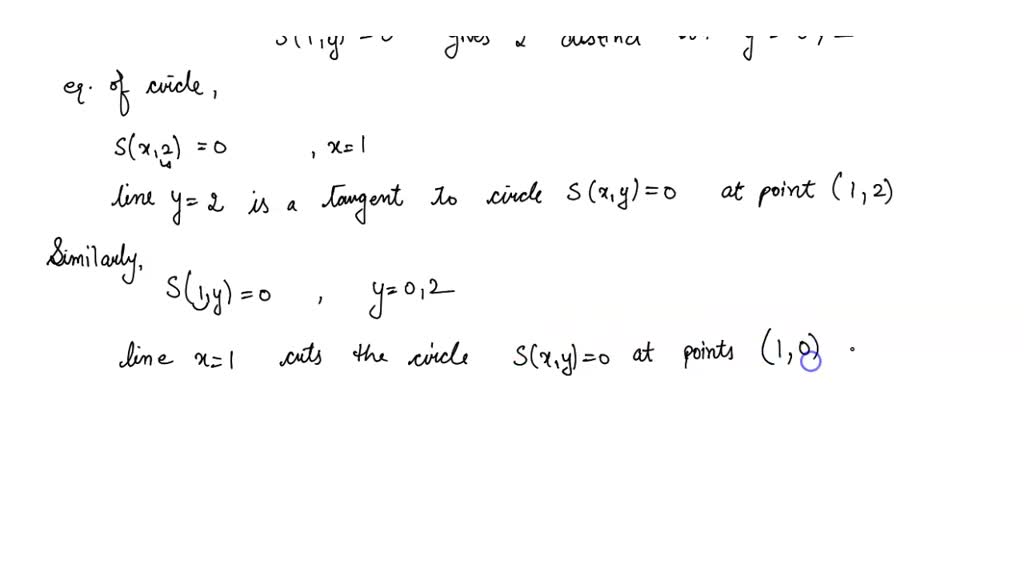 S(1,y) = 0 gives 2 distinct y = 0, 2
eq. of circle,
S(x,2) = 0 , x=1
line y= 2 is a tangent to circle S(x,y)=0 at point (1,2)
Similarly,
S(1,y)=0 , y=0,2
line x=1 cuts the circle S(x,y)=0 at points (1,0)